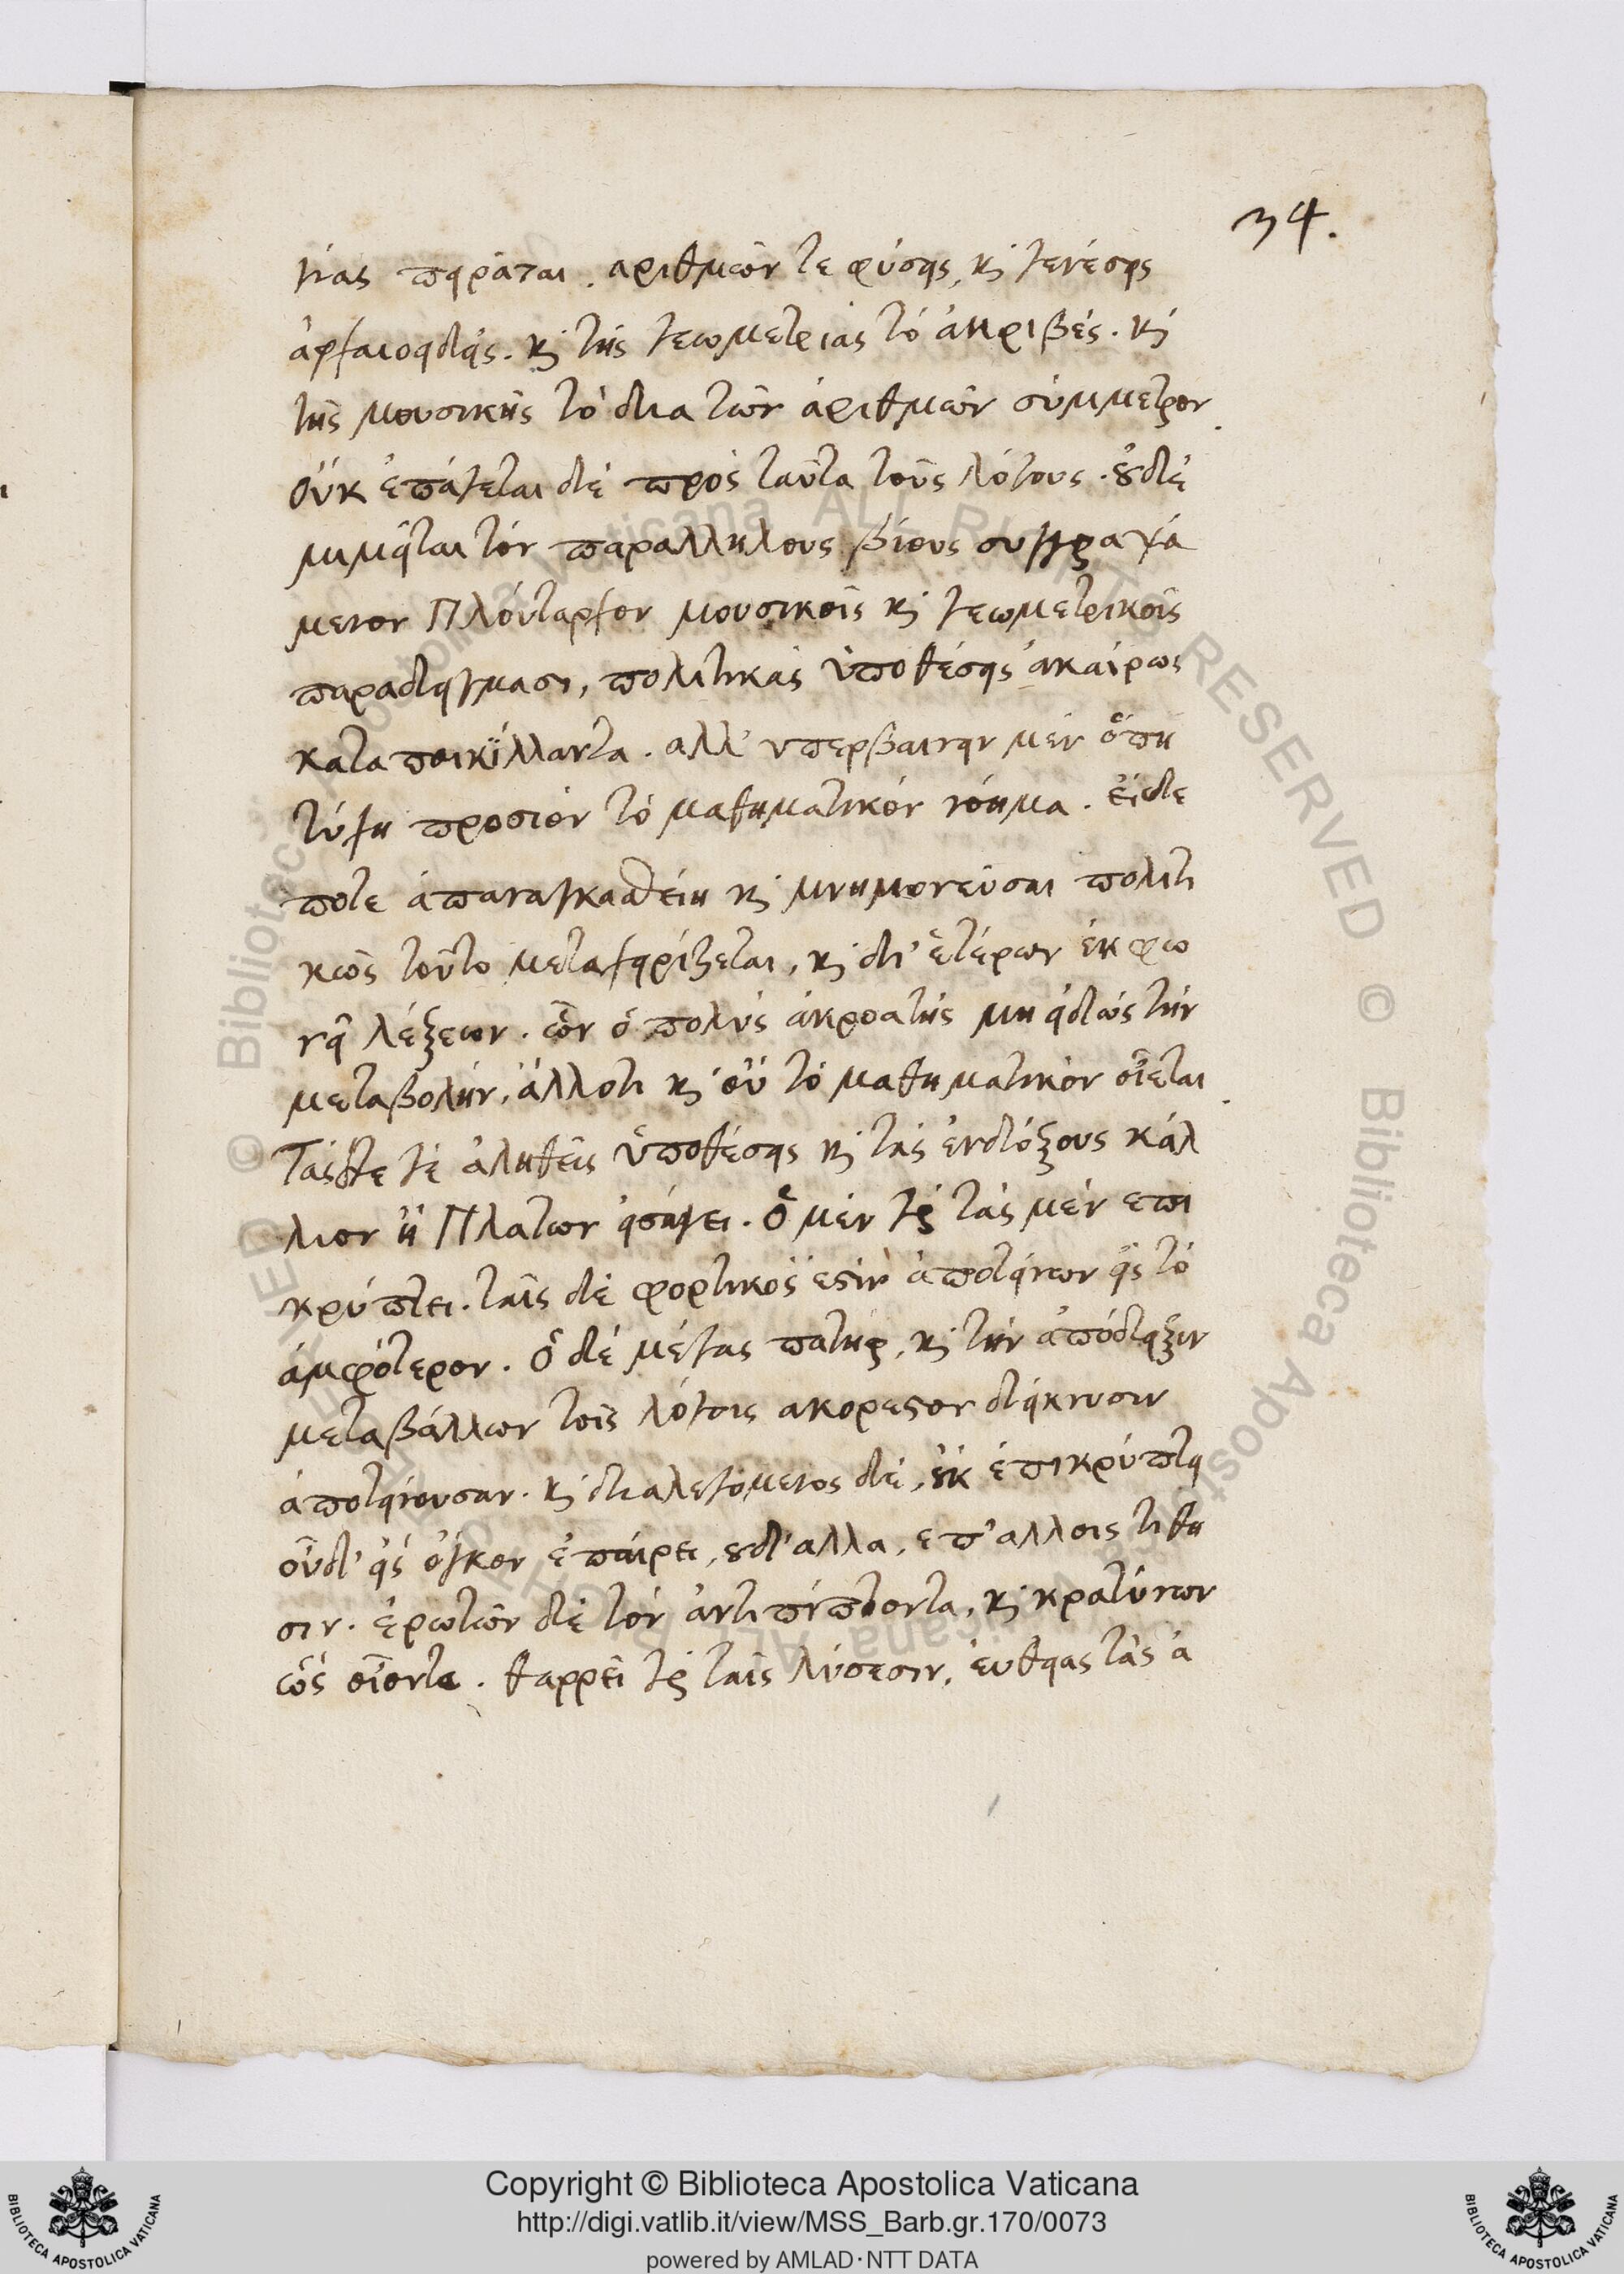 34.
νίας πειρᾶται. ἀριθμῶν τε φύσεις, καὶ γενέσεις
ἀρχαιοειδεῖς. καὶ τῆς γεωμετρίας τὸ ἀκριβές. καὶ
τῆς μουσικῆς τὸ δια τῶν ἀριθμῶν σύμμετρον.
οὐκ ἐπάγεται δὲ πρὸς ταῦτα τοὺς λόγους. οὐδὲ
μιμεῖται τὸν παραλλήλους βίους συγγραψά
μενον Πλούταρχον μουσικοῖς καὶ γεωμετρικοῖς
παραδείγμασι, πολιτικὰς ὑποθέσεις ἀκαίρως
καταποικίλλαντα. αλλ' υπερβαινειν μὲν ὅπη
τύχη προσιὸν τὸ μαθηματικὸν νόημα. εἰδε
ποτε ἀπαναγκασθείη καὶ μνημονεῦσαι πολιτι
κῶς τοῦτο μεταχειρίζεται, καὶ δι' ἑτέρων ἐκφω
νεῖ λέξεων. ὧν ὁ πολὺς ἀκροατὴς μη εἰδὼς τὴν
μεταβολὴν, ἄλλοτι καὶ οὐ τὸ μαθηματικὸν οἴεται.
Τάςδε γὲ ἀληθεῖς ὑποθέσεις καὶ τὰς ἐνδόξους κάλ
λιον ἢ Πλατων εἰσάγει. ὁ μὲν γὰρ τὰς μὲν επι
κρύπτει. ταῖς δὲ φορτικός ἐστιν ἀποτείνων εἰς τὸ
ἀμφότερον. ὁ δὲ μέγας πατὴρ, καὶ τὴν ἀπόδειξιν
μεταβάλλων τοῖς λόγοις ακορεστον δείκνυσιν
ἀποτείνουσαν. καὶ διαλεγόμενος δὲ, οὐκ ἐπικρύπτει
οὐδ' εἰς ὄγκον ἐπαίρει, οὐδ' αλλα, επ' αλλοις τιθη
σιν. ἐρωτῶν δὲ τὸν ἀντιπίπτοντα, καὶ κρατύνων
ὡς οἷόντε. θαρρεῖ γὰρ ταῖς λύσεσιν, ευθειας τὰς ἀ
Copyright © Biblioteca Apostolica Vaticana
http://digi.vatlib.it/view/MSS_Barb.gr.170/0073
powered by AMLAD·NTT DATA